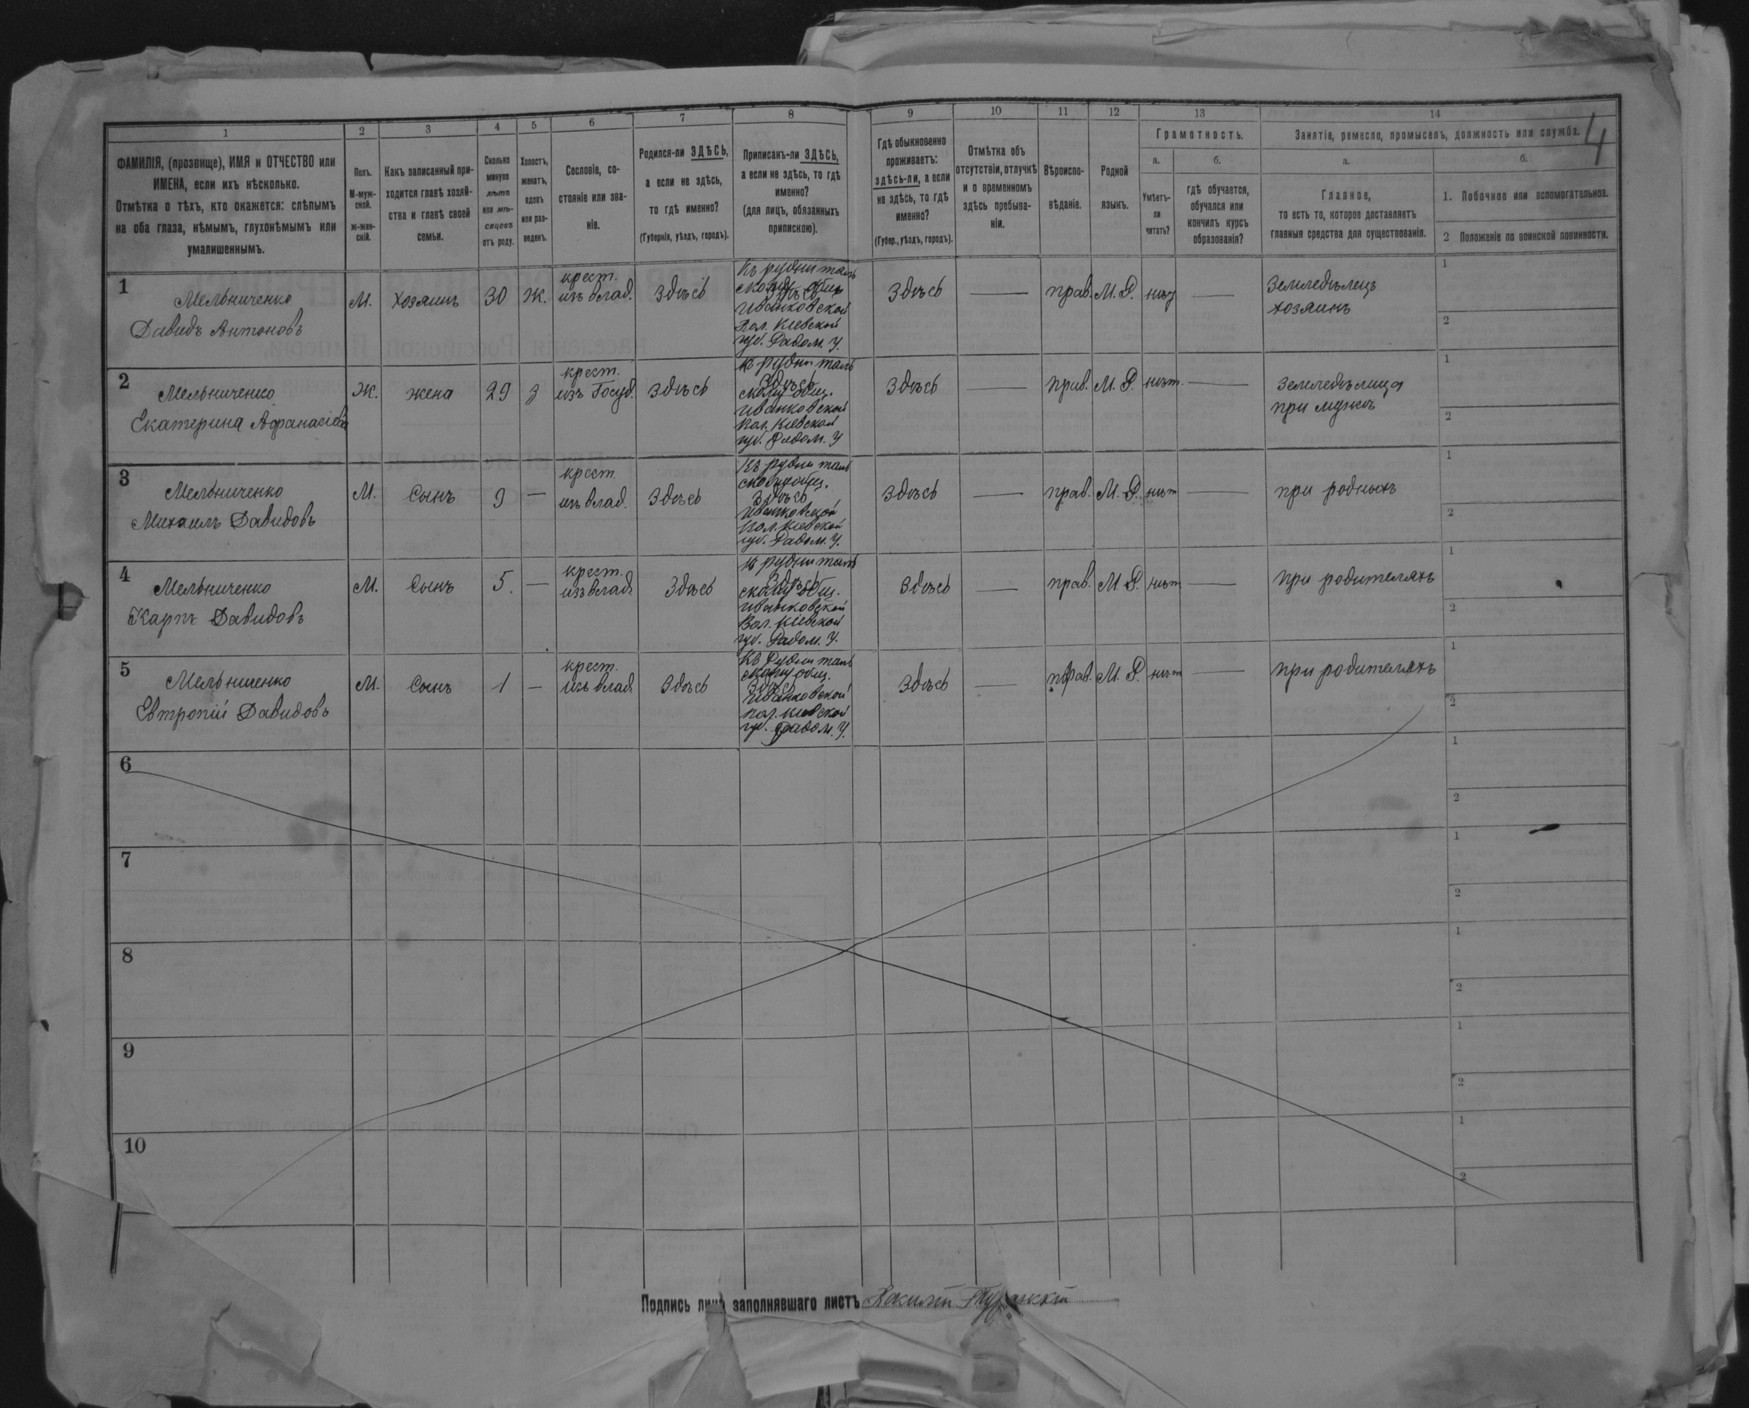 1 2 3 4 5 6 7 8 9 10 11 12 13 14
4
ФАМИЛІЯ, (прозвище), ИМЯ и ОТЧЕСТВО или
ИМЕНА, если ихъ нѣсколько.
Отмѣтка о тѣхъ, кто окажется: слѣпымъ
на оба глаза, нѣмымъ, глухонѣмымъ или
умалишеннымъ.
Полъ.
М-муж-
ской.
Ж-жен-
скій.
Какъ записанный при-
ходится главѣ хозяй-
ства и главѣ своей
семьи.
Сколько
минуло
лѣтъ
или мѣ-
сяцевъ
отъ роду.
Холостъ,
женатъ,
вдовъ
или раз-
веденъ.
Сословіе, со-
стояніе или зва-
ніе.
Родился-ли ЗДѢСЬ,
а если не здѣсь,
то гдѣ именно?
(Губернія, уѣздъ, городъ).
Приписанъ-ли ЗДѢСЬ,
а если не здѣсь, то гдѣ
именно?
(для лицъ, обязанныхъ
припискою).
Гдѣ обыкновенно
проживаетъ:
здѣсь-ли, а если
не здѣсь, то гдѣ
именно?
(Губер., уѣздъ, городъ).
Отмѣтка объ
отсутствіи, отлучкѣ
и о временномъ
здѣсь пребыва-
ніи.
Вѣроиспо-
вѣданіе.
Родной
языкъ.
Грамотность.
а.
Умѣетъ-
ли
читать?
б.
гдѣ обучается,
обучался или
кончилъ курсъ
образованія?
Занятіе, ремесло, промыселъ, должность или служба.
а.
Главное,
то есть то, которое доставляетъ
главныя средства для существованія.
б.
1. Побочное или вспомогательное.
2 Положеніе по воинской повинности.
1
Мельниченко
Давидъ Антоновъ
М. хозяинъ 30 ж.
крест.
изъ влад.
Здѣсь
Къ рудни таль
скому общ.
Здѣсь
Иванковской
Вол. Кіевской
гу. Радом. У.
Здѣсь — прав. М. Р. нѣт —
Земледѣлецъ
хозяинъ
1
2
2
Мельниченко
Екатерина Афанасіева
Ж. жена 29 з
крест.
изъ Госуд.
Здѣсь
къ рудни таль
Здѣсь
скому общ.
Иванковской
Вол. Кіевской
гу. Радом. У
Здѣсь — прав. М. Р. нѣт. —
Земледѣлица
при мужѣ
1
2
3
Мельниченко
Михаилъ Давидовъ
М. Сынъ 9 —
крест.
изъ влад.
Здѣсь
Къ рудни таль
скому общ.
Здѣсь
Иванковской
Вол. Кіевской
гу. Радом. У.
Здѣсь — прав. М. Р. нѣт —
при родныхъ
1
2
4
Мельниченко
Карпъ Давидовъ
М. Сынъ 5. —
крест.
изъ влад.
Здѣсь
къ рудни таль
Здѣсь
скому общ.
Иванковской
Вол. Кіевской
гу. Радом. У.
Здѣсь — прав. М. Р. нѣт —
при родителяхъ
1
2
5
Мельниченко
Евтропій Давидовъ
М. Сынъ 1 —
крест.
изъ влад.
Здѣсь
Къ Рудни таль
скому общ.
Здѣсь
Иванковской
Вол. Кіевской
гу. Радом. У.
Здѣсь — прав. М. Р. нѣт —
при родителяхъ
1
2
6
1
2
7
1
2
8
1
2
9
1
2
10
1
2
Подпись лица заполнявшаго листъ Василій